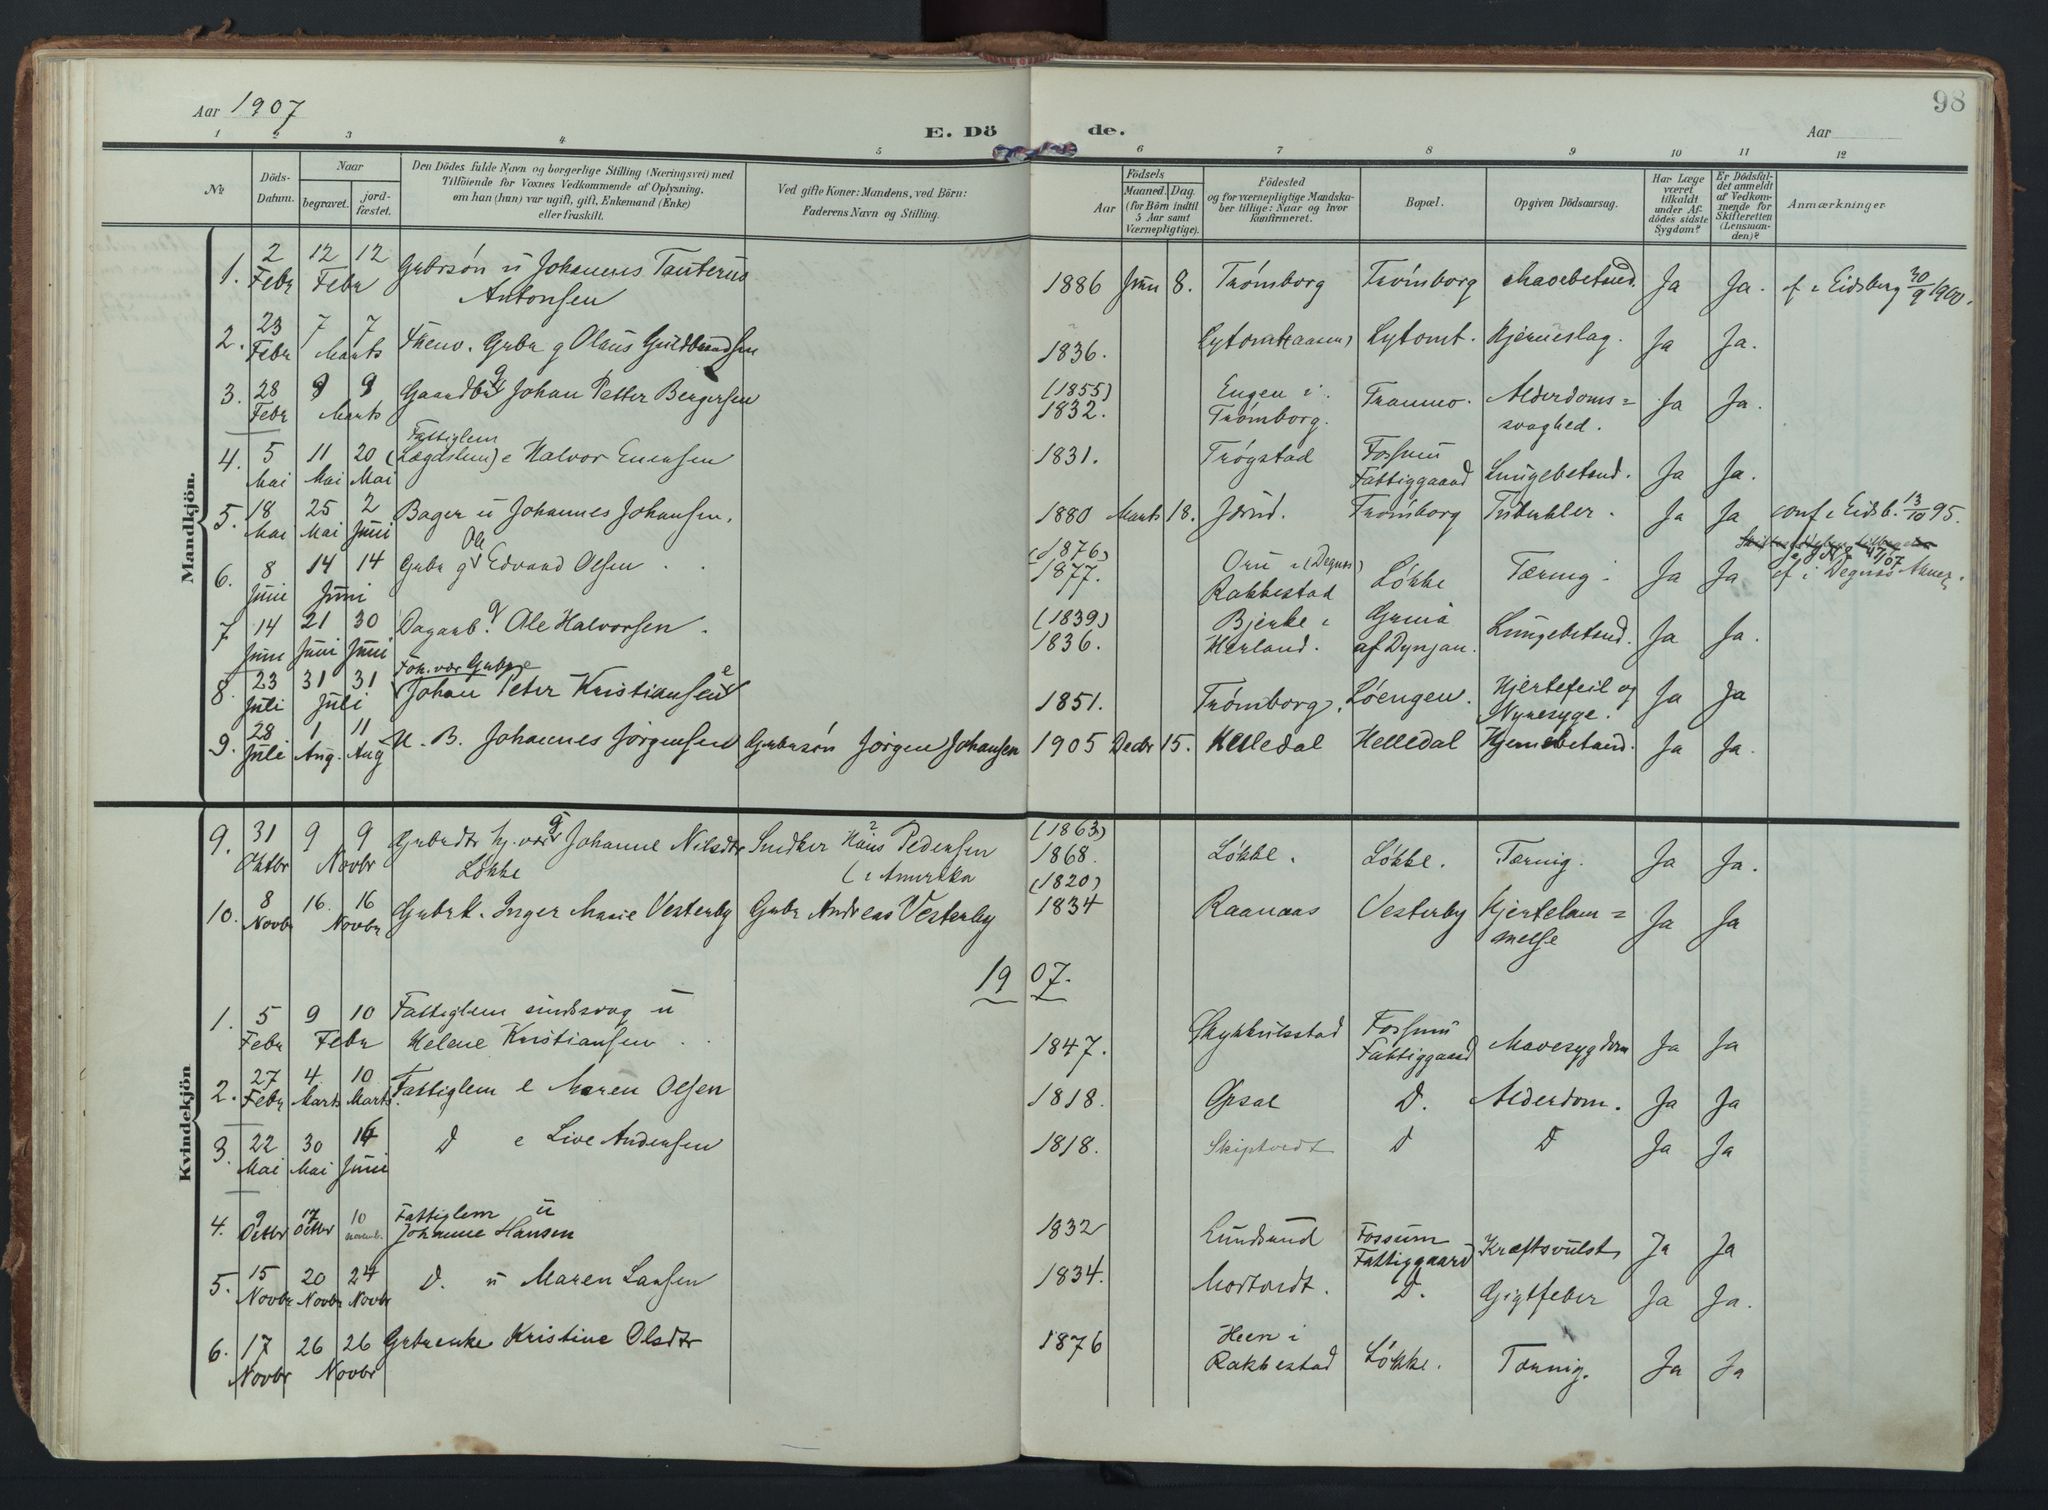 Aar 1907
E. Dö de.
98
Aar
1 2 3 4 5 6 7 8 9 10 11 12
№
Döds-
Datum.
Naar
begravet.
jord-
fæstet.
Den Dödes fulde Navn og borgerlige Stilling (Næringsvei) med
Tilföiende for Voxnes Vedkommende af Oplysning,
om han (hun) var ugift, gift, Enkemand (Enke)
eller fraskilt.
Ved gifte Koner: Mandens, ved Börn:
Faderens Navn og Stilling.
Födsels
Aar
Maaned. Dag.
(for Börn indtil
5 Aar samt
Værnepligtige).
Födested
og for værnepligtige Mandska-
ber tillige: Naar og hvor
konfirmeret.
Bopæl.
Opgiven Dödsaarsag.
Har Læge
været
tilkaldt
under Af-
dödes sidste
Sygdom?
Er Dödsfal-
det anmeldt
af Vedkom-
mende for
Skifteretten
(Lensman-
den)?
Anmærkninger
Mandkjön.
1. 2 Febr 12 12 Febr Gubrsøn u Johannes Tanterus
Antonsen 1886 Juni 8. Trømborg Trømborg Mavebetænd. Ja Ja. cf i Eidsberg 30/9 1900.
2. 23 Febr 7 7 Marts Gubr g Olaus Guldbrandsen 1836. Lytomt Hjerneslag. Ja Ja.
3. 28 Febr 9 9 Marts Gaardbr g Johan Petter Bergersen (1855) 1832. Engen i
Trømborg. Alderdoms=
svaghed. Ja Ja.
4. 5 Mai 11 Mai 20 Mai Fattiglem
(Lægdslem) e Halvor Evensen 1831. Trøgstad Fossum
Fattiggaard Lungebetænd. Ja Ja.
5. 18 Mai 25 Mai 2 Juni Bager u Johannes Johansen. 1880 Marts 18. Trømborg Tuberkler. Ja Ja conf i Eidsb. 13/10 95.
6. 8 Juni 14 14 Juni Gubr g Ole Edvard Olsen (1876) 1877. Rakkestad Løkke Tæring. Ja Ja cf i Degnss
7. 14 Juni 21 Juni 30 Juni Dagarb. g Ole Halvorsen. (1839) 1836. Bjerke i
Herland. Lungebetænd. Ja Ja.
8. 23 Juli 31 31 Juli
Johan Peter Kristiansen 1851. Trømborg. Løengen. Hjertefeil og
Nyresyge. Ja Ja
9. 28 Juli 1 Aug. 11 Aug U. B. Johannes Jørgensen Gubrsøn Jørgen Johansen 1905 Decbr 15. Helledal Helledal Ja Ja.
Kvindekjön
9. 31 Oktbr 9 9 Novbr Johanne Nilsdtr
Løkke Snedker Hans Pedersen
(i Amerika (1863) 1868. Løkke. Løkke. Tæring. Ja Ja.
10. 8 Novbr 16. 16 Novbr Gubrk. Inger Marie Vesterby Gubr Andreas Vesterby (1820) 1834 Raanaas Vesterby Hjertelam=
melse Ja Ja
1907.
1. 5 Febr 9 10 Febr Fattiglem sindssvag u
Helene Kristiansen 1847. Fossum
Fattiggaard Mavesygdom Ja Ja
2. 27 Febr 4 Marts 10 Marts Fattiglem e Maren Olsen 1818. Opsal D. Alderdom. Ja Ja
3. 22 Mai 30 Mai Juni D e Live Andersen 1818. Skiptvedt D D Ja Ja
4. 9 Octbr 17 Octbr 10 novemb. Fattiglem u
Johanne Hansen 1832 Lundsund Fossum
Fattiggaard Kræftsvulst Ja Ja
5. 15 Novbr 20 Novbr 24 Novbr D. u Maren Larsen 1834. Mortvedt. D. Gigtfeber Ja Ja.
6. 17 Novbr 26 26 Novbr Gubrenke Kristine Olsdtr 1876 Heen i
Rakkestad Løkke. Tæring. Ja Ja